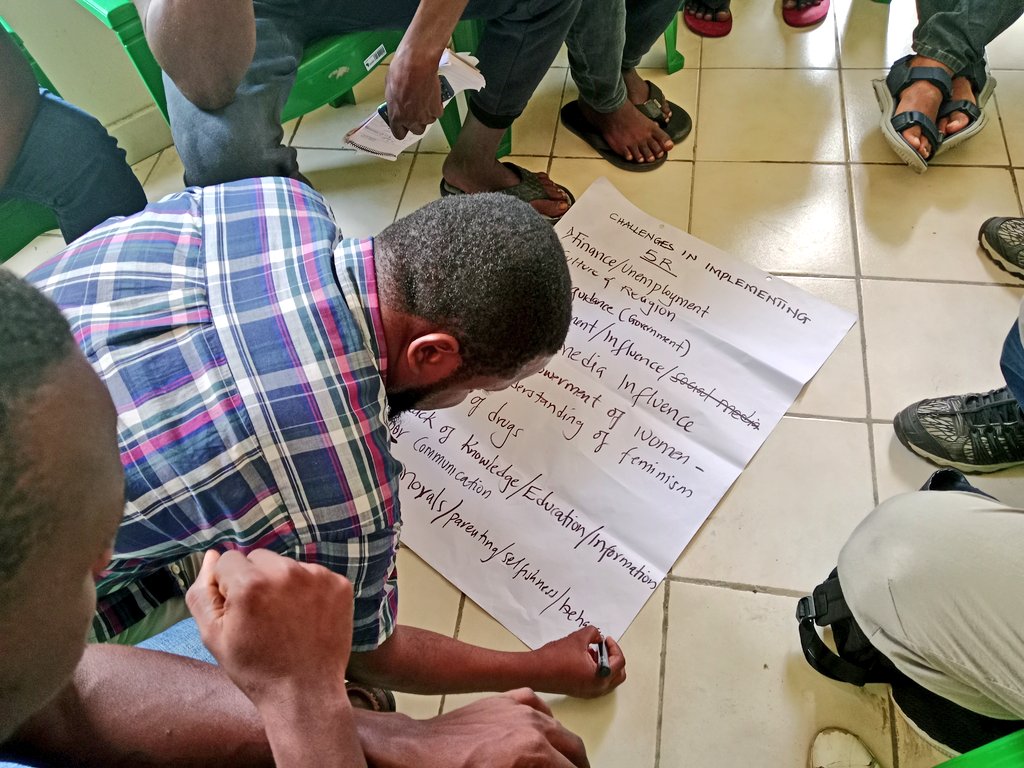 CHALLENGES IN IMPLEMENTING
5R
1) Finance/Unemployment
ulture & Religion
(Government)
ment/Influence/social media
media Influence
owerment of women-
derstanding of feminism
of drugs
ack of Knowledge/Education/Information
Communication
Morals/parenting/selfishness/beha